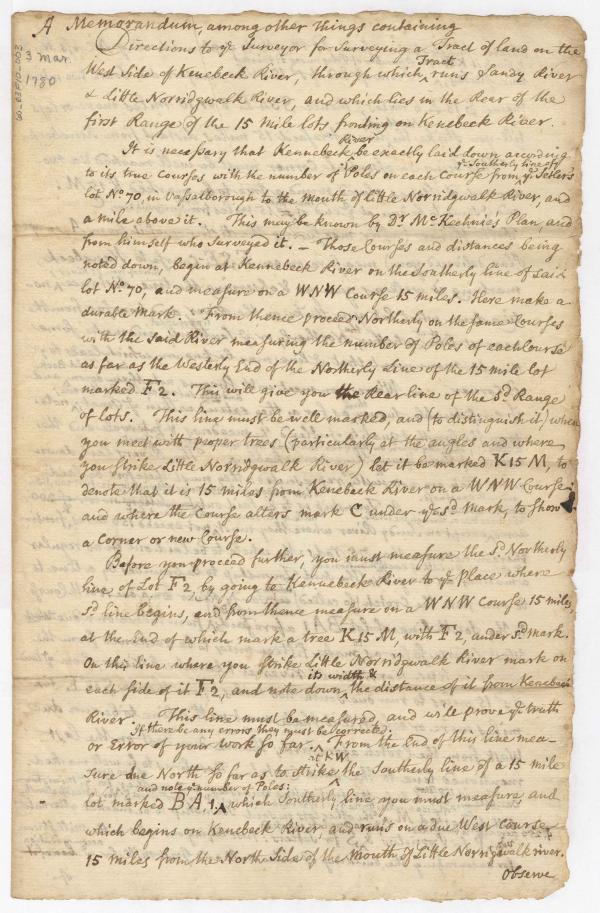 A Memorandum, among other things containing
Directions to ye Surveyor for Surveying a Tract of land on the
West Side of Kenebeck River, through which Tract runs Sandy River
& Little Norridgwalk River, and which lies in the Rear of the
first Range of the 15 mile lots fronting on Kenebeck River.
3 Mar.
1780
It is necessary that Kennebeck River be exactly laid down according
to its true Courses with the number of Poles on each Course from ye Southerly line of ye Setlers
lot No. 70, in Vassalborough to the mouth of little Norridgwalk River, and
a mile above it. This may be known by Dr. McKechnie's Plan, and
from himself who Surveyed it. – Those Courses and distances being
noted down, begin at Kennebeck River on the Southerly line of said
lot No. 70, and measure on a WNW Course 15 miles. Here make a
durable mark. From thence proceed Northerly on the same Courses
with the said River measuring the number of Poles of each Course
as far as the Westerly End of the Northerly Line of the 15 mile lot
marked F2. This will give you the Rear line of the sd. Range
of lots. This line must be well marked, and (to distinguish it) when
you meet with proper trees (particularly at the angles and where
you strike Little Norridgwalk River) let it be marked K15M, to
denote that it is 15 miles from Kenebeck River on a WNW Course:
and where the Course alters mark C under ye sd. mark, to show
a Corner or new Course.
Before you proceed further, you must measure the sd. Northerly
line of Lot F2, by going to Kennebeck River to ye place where
sd. line begins, and from thence measure on a WNW Course 15 miles
at the End of which mark a tree K15M, with F2, under sd. mark.
On this line where you strike Little Norridgwalk River mark on
each side of it F2, and note down its width & the distance of it from Kenebeck
River. This line must be measured, and will prove ye truth
or Error of your work so far. If there be any errors they must be corrected. From the End of this line mea-
sure due North so far as to strike at KW the Southerly line of a 15 mile
lot marked BA1, and note ye number of Poles: which Southerly line you must measure, and
which begins on Kenebeck River, and runs on a due West Course
15 miles from the North Side of the Mouth of Little Norridgwalk river.
Observe